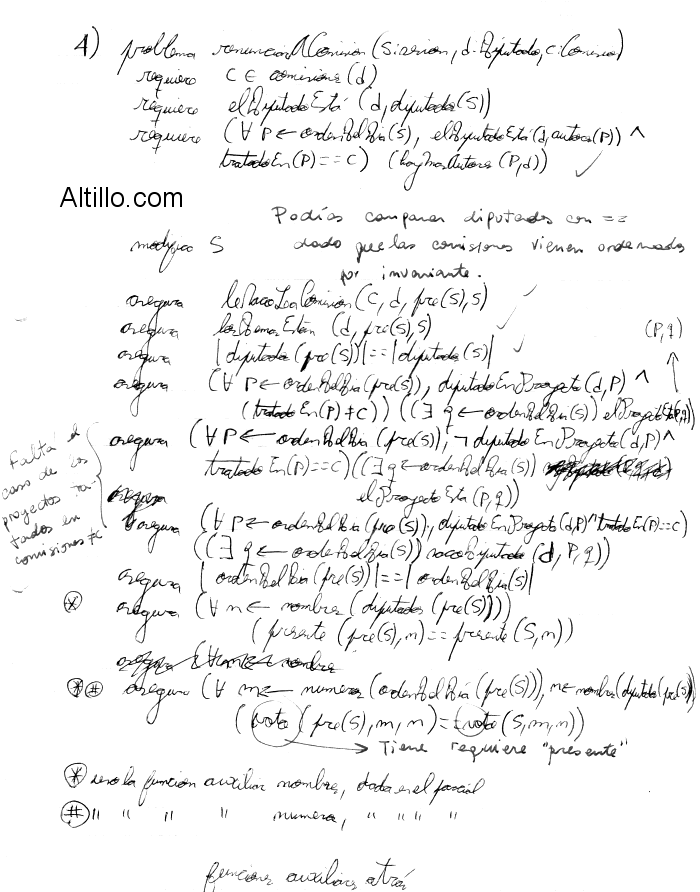 4) problema renunciarAComision (s:sesion, d:Diputado, c:Comision)
requiere c ∈ comisiones (d)
requiere elDiputadoEstá (d, diputados(S))
requiere (∀ P ← ordenDelDia(S), elDiputadoEstá (d, autores(P)) ∧
tratadoEn(P) == c) (hayMasAutores (P,d))
Altillo.com
Podías comparar diputados con ==
modifica S dado que las comisiones vienen ordenadas
por invariante.
asegura leSacoLaComision (C, d, pre(S), S)
asegura losDemasEstán (d, pre(S), S)
(P,q)
asegura |diputados (pre(S))| == |diputados (S)|
asegura (∀ P ← ordenDelDia (pre(S)), diputadoEnProyecto (d,P) ∧
(tratadoEn(P) ≠ C)) ((∃ q ← ordenDelDia(S)) elProyectoEstá(P,q))
asegura (∀ P ← ordenDelDia (pre(S)), ¬ diputadoEnProyecto (d,P) ∧
tratadoEn(P) == C) ((∃ q ← ordenDelDia(S))
elProyectoEstá (P,q))
Falta el
caso de los
proyectos tra-
tados en
comisiones ≠ C
asegura (∀ P ← ordenDelDia (pre(S)), diputadoEnProyecto (d,P) ∧ tratadoEn(P) == C)
((∃ q ← ordenDelDia(S)) sacoDiputado (d, P, q))
asegura |ordenDelDia (pre(S))| == |ordenDelDia(S)|
* asegura (∀ n ← nombres (diputados (pre(S))))
(presente (pre(S), n) == presente (S, n))
*# asegura (∀ m ← numeros (ordenDelDia (pre(S))), n ← nombres (diputados (pre(S)))
(voto (pre(S), m, n) = voto (S, m, n))
Tiene requiere "presente"
* uso la funcion auxiliar nombres, dada en el parcial
# " " " " numeros, " " " "
funciones auxiliares atrás